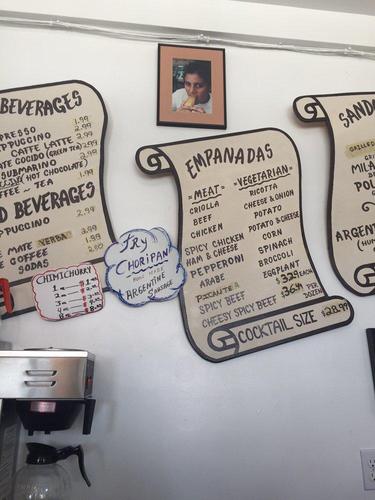 BEVERAGES
PRESSO 1.99
PPUCCINO 2.99
CAFFE LATTE 2.99
ATE COCIDO (GREEN TEA) 2.99
SUBMARINO
(HOT CHOCOLATE) 2.99
FFEE ~ TEA 1.99
D BEVERAGES
PPUCCINO 2.99
E MATE YERBA 2.99
E COFFEE 1.99
SODAS
CHIMICHURRY
TRY
CHORIPAN
ARGENTINE
SAUSAGE
EMPANADAS
MEAT
CRIOLLA
BEEF
CHICKEN
SPICY CHICKEN
HAM & CHEESE
PEPPERONI
ARABE
PICANTE
SPICY BEEF
CHEESY SPICY BEEF
VEGETARIAN
RICOTTA
CHEESE & ONION
POTATO
POTATO & CHEESE
CORN
SPINACH
BROCCOLI
EGGPLANT
EACH
PER
DOZEN
COCKTAIL SIZE $28.99
SAND
GRILLED
MILA
POL
ARGENT